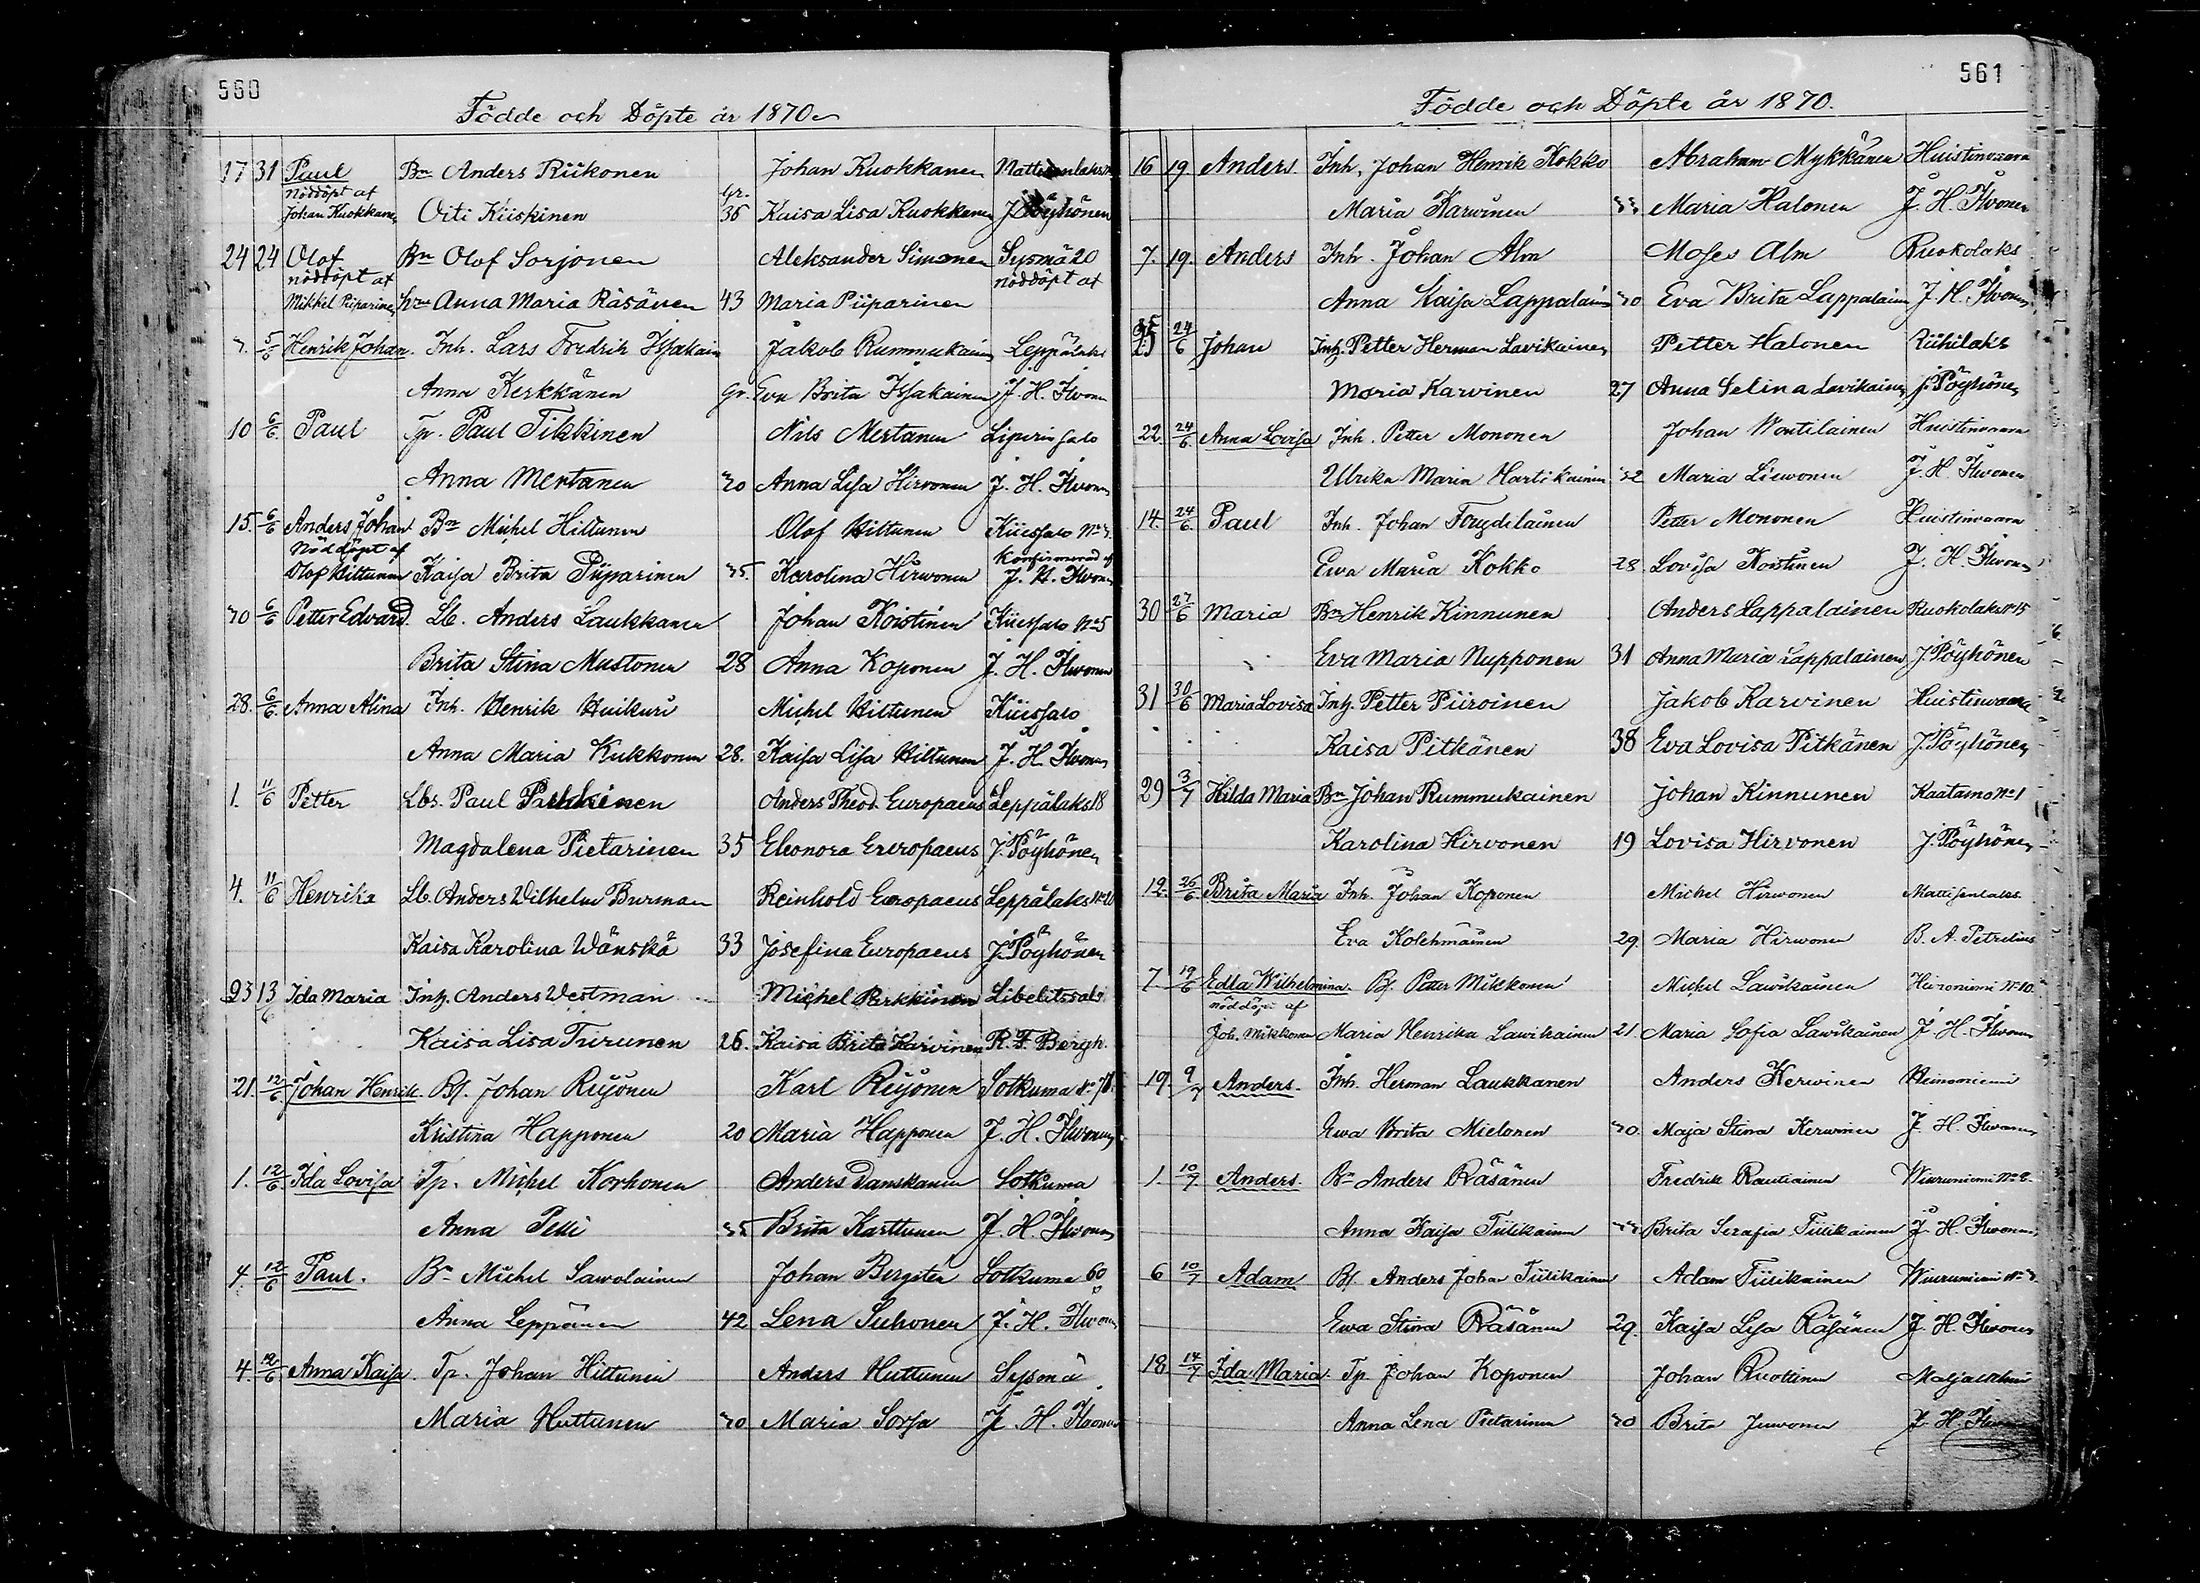 560
Födde och Döpte år 1870
17 31 Paul Bn Anders Riikonen Johan Kuokkanen
nöddöpt af
Johan Kuokkanen Oiti Kiiskinen gr. 36 Kaisa Lisa Kuokkanen J. Pöyhönen
24 24 Olof Bn Olof Sorjonen Aleksander Simonen Sysmä 20
nöddöpt af nöddöpt af
Mikkel Piiparinen hru Anna Maria Räsänen 43 Maria Piiparinen
7. 5/6 Henrik Johan. Inh. Lars Fredrik Issakain Jakob Rummukain Leppälaks
Anna Kerkkänen gr. Eva Brita Issakainen J. H. Ilvonen
10 6/6 Paul Tp. Paul Tikkinen Nils Mertanen Liperin salo
Anna Mertanen 30 Anna Lisa Hirvonen J. H. Ilvonen
15. 6/6 Anders Johan Bn Michel Hiltunen Olof Hiltunen Kiissalo No 3.
Nöddöpt af Konfirmerad af
Olof Hiltunen Kaisa Brita Piiparinen 35. Karolina Hirwonen J. H. Ilvonen
30 6/6 Petter Edvard. Lb. Anders Laukkanen Johan Koistinen Kiissalo No 5
Brita Stina Mustonen 28 Anna Koponen J. H. Ilvonen
28. 6/6 Anna Alina Inh. Henrik Huikuri Michel Hiltunen Kiissalo
Anna Maria Kukkonen 28. Kaisa Lisa Hiltunen J. H. Ilvonen
1. 11/6 Petter Lbs. Paul Parkkinen Anders Theod. Europaeus Leppälaks 18
Magdalena Pietarinen 35 Eleonora Europaeus J. Pöyhönen
4. 11/6 Henrika Lb. Anders Wilhelm Burman Reinhold Europaeus Leppälaks No 20
Kaisa Karolina Wänskä 33 Josefina Europaeus J. Pöyhönen
23 13/6 Ida Maria Inh. Anders Westman Michel Parkkinen Libelitssalo
Kaisa Lisa Turunen 26. Kaisa Brita Karvinen R. F. Bergh.
21. 12/6 Johan Henrik. Bs. Johan Reijonen Karl Reijonen Sotkuma
Kristina Happonen 20 Maria Happonen J. H. Ilvonen
1. 12/6 Ida Lovisa Tp. Michel Korhonen Anders Danskanen Sotkuma
Anna Pelli 35 Brita Karttunen J. H. Ilvonen
4. 12/6 Paul. Bn Michel Sawolainen Johan Bergsten Sotkuma 60
Anna Leppänen 42 Lena Suhonen J. H. Ilvonen
4. 12/6 Anna Kaisa Tp. Johan Hiltunen Anders Huttunen Sysmä
Maria Huttunen 30 Maria Sorsa J. H. Ilvonen
561
Födde och Döpte år 1870.
16 19 Anders. Inh. Johan Henrik Kokko Abraham Mykkänen Huistinvaara
Maria Karwinen 33 Maria Halonen J. H. Ilvonen
7. 19. Anders Inh. Johan Alm Moses Alm Ruokolaks
Anna Kaisa Lappalainen 30 Eva Brita Lappalainen J. H. Ilvonen
25 24/6 Johan Inh. Petter Herman Lavikainen Petter Halonen Riihilaks
Maria Karvinen 27 Anna Selina Lavikainen J. Pöyhönen
22. 24/6. Anna Lovisa Inh. Petter Mononen Johan Wontilainen Huistinvaara
Ulrika Maria Hartikainen 32 Maria Liewonen J. H. Ilvonen
14. 24/6. Paul Inh. Johan Torydilainen Petter Mononen Huistinvaara
Ewa Maria Kokko 28. Lovisa Koistinen J. H. Ilvonen
30 27/6 Maria Bn Henrik Kinnunen Anders Lappalainen Ruokolaks No 15
Eva Maria Nupponen 31 Anna Maria Lappalainen J. Pöyhönen
31 30/6 Maria Lovisa Inh. Petter Piiroinen Jakob Karvinen Huistinvaara
Kaisa Pitkänen 38 Eva Lovisa Pitkänen J. Pöyhönen
29 3/7 Hilda Maria Bn Johan Rummukainen Johan Kinnunen Kaatamo No 1
Karolina Hirvonen 19 Lovisa Hirvonen J. Pöyhönen
12. 26/6 Brita Maria Inh. Johan Koponen Michel Hirwonen Mattisenlaks
Eva Kolehmainen 29. Maria Hirwonen B. A. Petrelius
7. 19/6 Edla Wilhelmina. Bs. Petter Mikkonen Michel Lawikainen No 10.
nöddöpt af
Joh. Mikkonen Maria Henrika Lawikainen 21. Maria Sofia Lawikainen J. H. Ilvonen
19. 9/7 Anders. Inh. Herman Laukkanen Anders Kerwinen Heinoniemi
Ewa Brita Mielonen 30. Maja Stina Kerwinen J. H. Ilvonen
1. 10/7. Anders. Bn Anders Räsänen Fredrik Rautiainen Wiuruniemi No 2.
Anna Kaisa Tiilikainen 33 Brita Serafia Tiilikainen J. H. Ilvonen
6 10/7 Adam Bs. Anders Johan Tiilikainen Adam Tiilikainen Wiuruniemi No 3.
Ewa Stina Räsänen 29. Kaisa Lisa Räsänen J. H. Ilvonen
18. 14/7 Ida Maria. Tp. Johan Koponen Johan Ruottinen
Anna Lena Pietarinen 30 Brita Juwonen J. H. Ilvonen